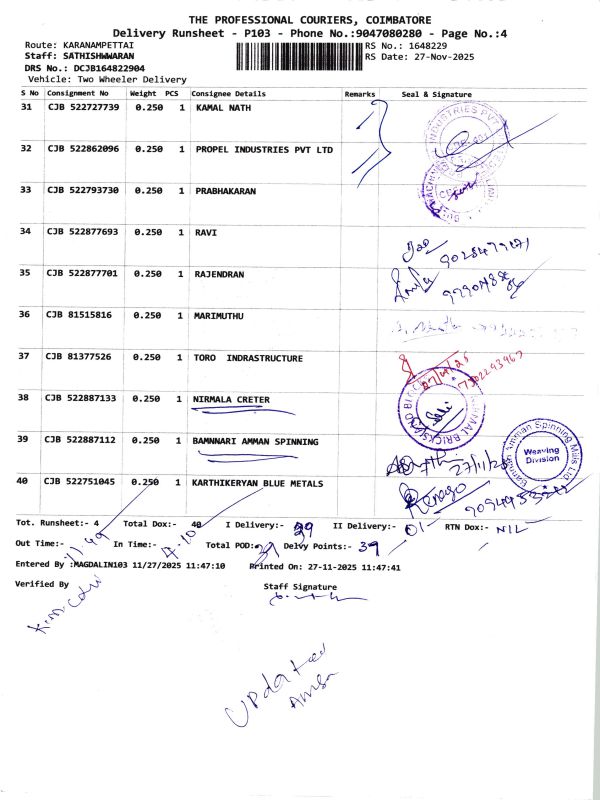 THE PROFESSIONAL COURIERS, COIMBATORE
Delivery Runsheet - P103 - Phone No.:9047080280 - Page No.:4
Route: KARANAMPETTAI RS No.: 1648229
Staff: SATHISHWWARAN RS Date: 27-Nov-2025
DRS No.: DCJB164822904
Vehicle: Two Wheeler Delivery
S No Consignment No Weight PCS Consignee Details Remarks Seal & Signature
31 CJB 522727739 0.250 1 KAMAL NATH
32 CJB 522862096 0.250 1 PROPEL INDUSTRIES PVT LTD
33 CJB 522793730 0.250 1 PRABHAKARAN
34 CJB 522877693 0.250 1 RAVI
35 CJB 522877701 0.250 1 RAJENDRAN
36 CJB 81515816 0.250 1 MARIMUTHU
37 CJB 81377526 0.250 1 TORO INDRASTRUCTURE
7502293967
38 CJB 522887133 0.250 1 NIRMALA CRETER
39 CJB 522887112 0.250 1 BAMNNARI AMMAN SPINNING
Bannari Amman Spinning Mills Ltd.
Weaving
Division
40 CJB 522751045 0.250 1 KARTHIKERYAN BLUE METALS
Tot. Runsheet:- 4 Total Dox:- 40 I Delivery:- 39 II Delivery:- 01 RTN Dox:- NIL
Out Time:- 11.49 In Time:- 17.10 Total POD:- 39 Delvy Points:- 39
Entered By :MAGDALIN103 11/27/2025 11:47:10 Printed On: 27-11-2025 11:47:41
Verified By Staff Signature
Updated